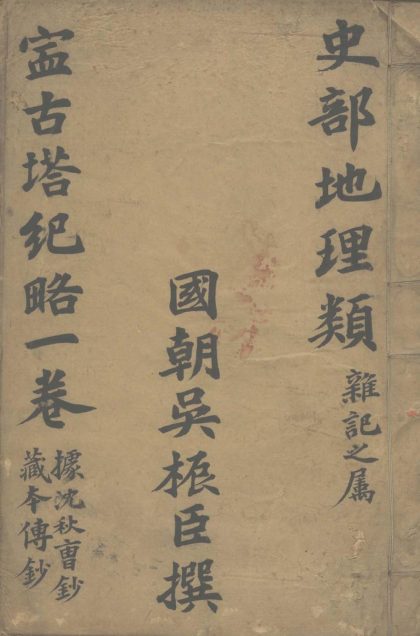 史部地理類
雜記之属
國朝吳桭臣撰
寍古塔紀略一卷
據沈秋曺鈔
藏本傳鈔